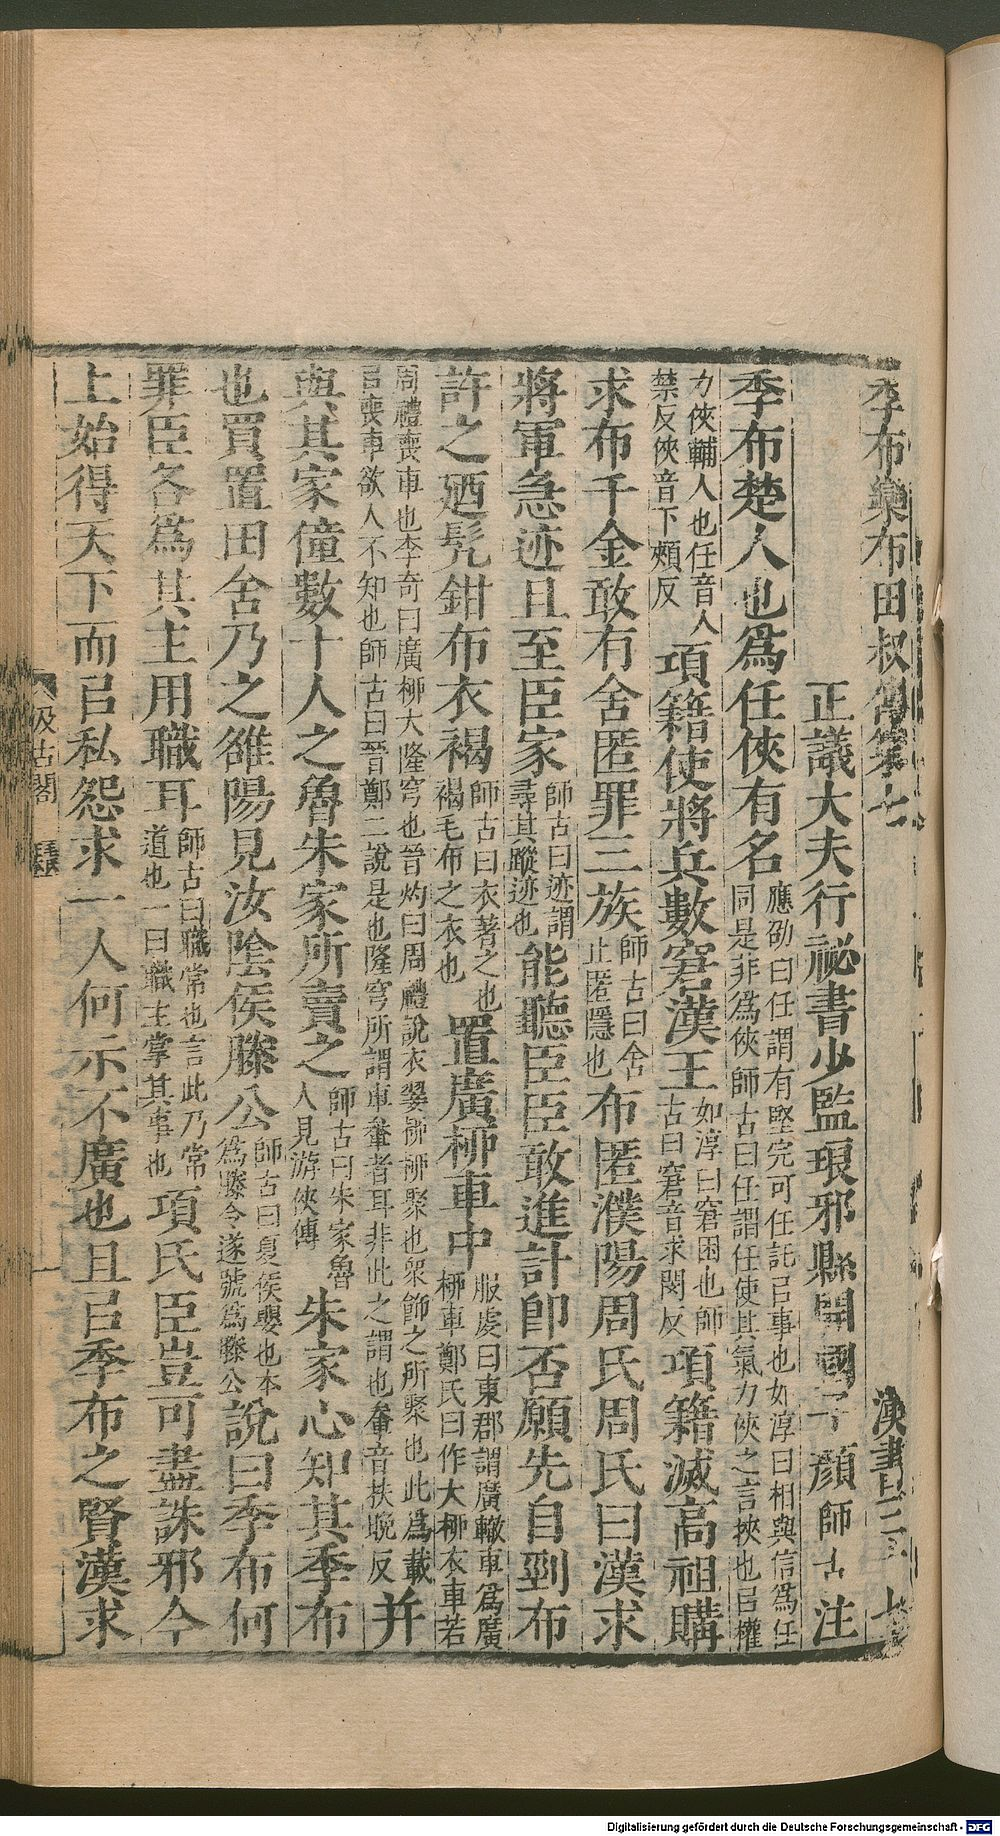 季布欒布田叔傳第七　漢書三十七
正議大夫行祕書少監琅邪縣開國子顏師古注
季布楚人也爲任俠有名應劭曰任謂有堅完可任託㠯事也如淳曰相與信爲任同是非爲俠師古曰任謂任使其氣力俠之言挾也㠯權
力俠輔人也任音人禁反俠音下頰反項籍使將兵數窘漢王如淳曰窘困也師古曰窘音求閔反項籍滅高祖購
求布千金敢有舍匿罪三族師古曰舍止匿隱也布匿濮陽周氏周氏曰漢求
將軍急迹且至臣家師古曰迹謂尋其蹤迹也能聽臣臣敢進計卽否願先自剄布
許之廼髡鉗布衣褐師古曰衣著之也褐毛布之衣也置廣柳車中服虔曰東郡謂廣轍車爲廣柳車鄭氏曰作大柳衣車若
周禮喪車也李奇曰廣柳大隆穹也晉灼曰周禮說衣翣柳柳聚也衆飾之所聚也此爲載㠯喪車欲人不知也師古曰晉鄭二說是也隆穹所謂車軬者耳非此之謂也軬音扶晚反并
與其家僮數十人之魯朱家所賣之師古曰朱家魯人見游俠傳朱家心知其季布
也買置田舍乃之雒陽見汝陰侯滕公師古曰夏侯嬰也本爲滕令遂號爲滕公說曰季布何
罪臣各爲其主用職耳師古曰職常也言此乃常道也一曰職主掌其事也項氏臣豈可盡誅邪今
上始得天下而㠯私怨求一人何示不廣也且㠯季布之賢漢求
汲古閣
Digitalisierung gefördert durch die Deutsche Forschungsgemeinschaft - DFG